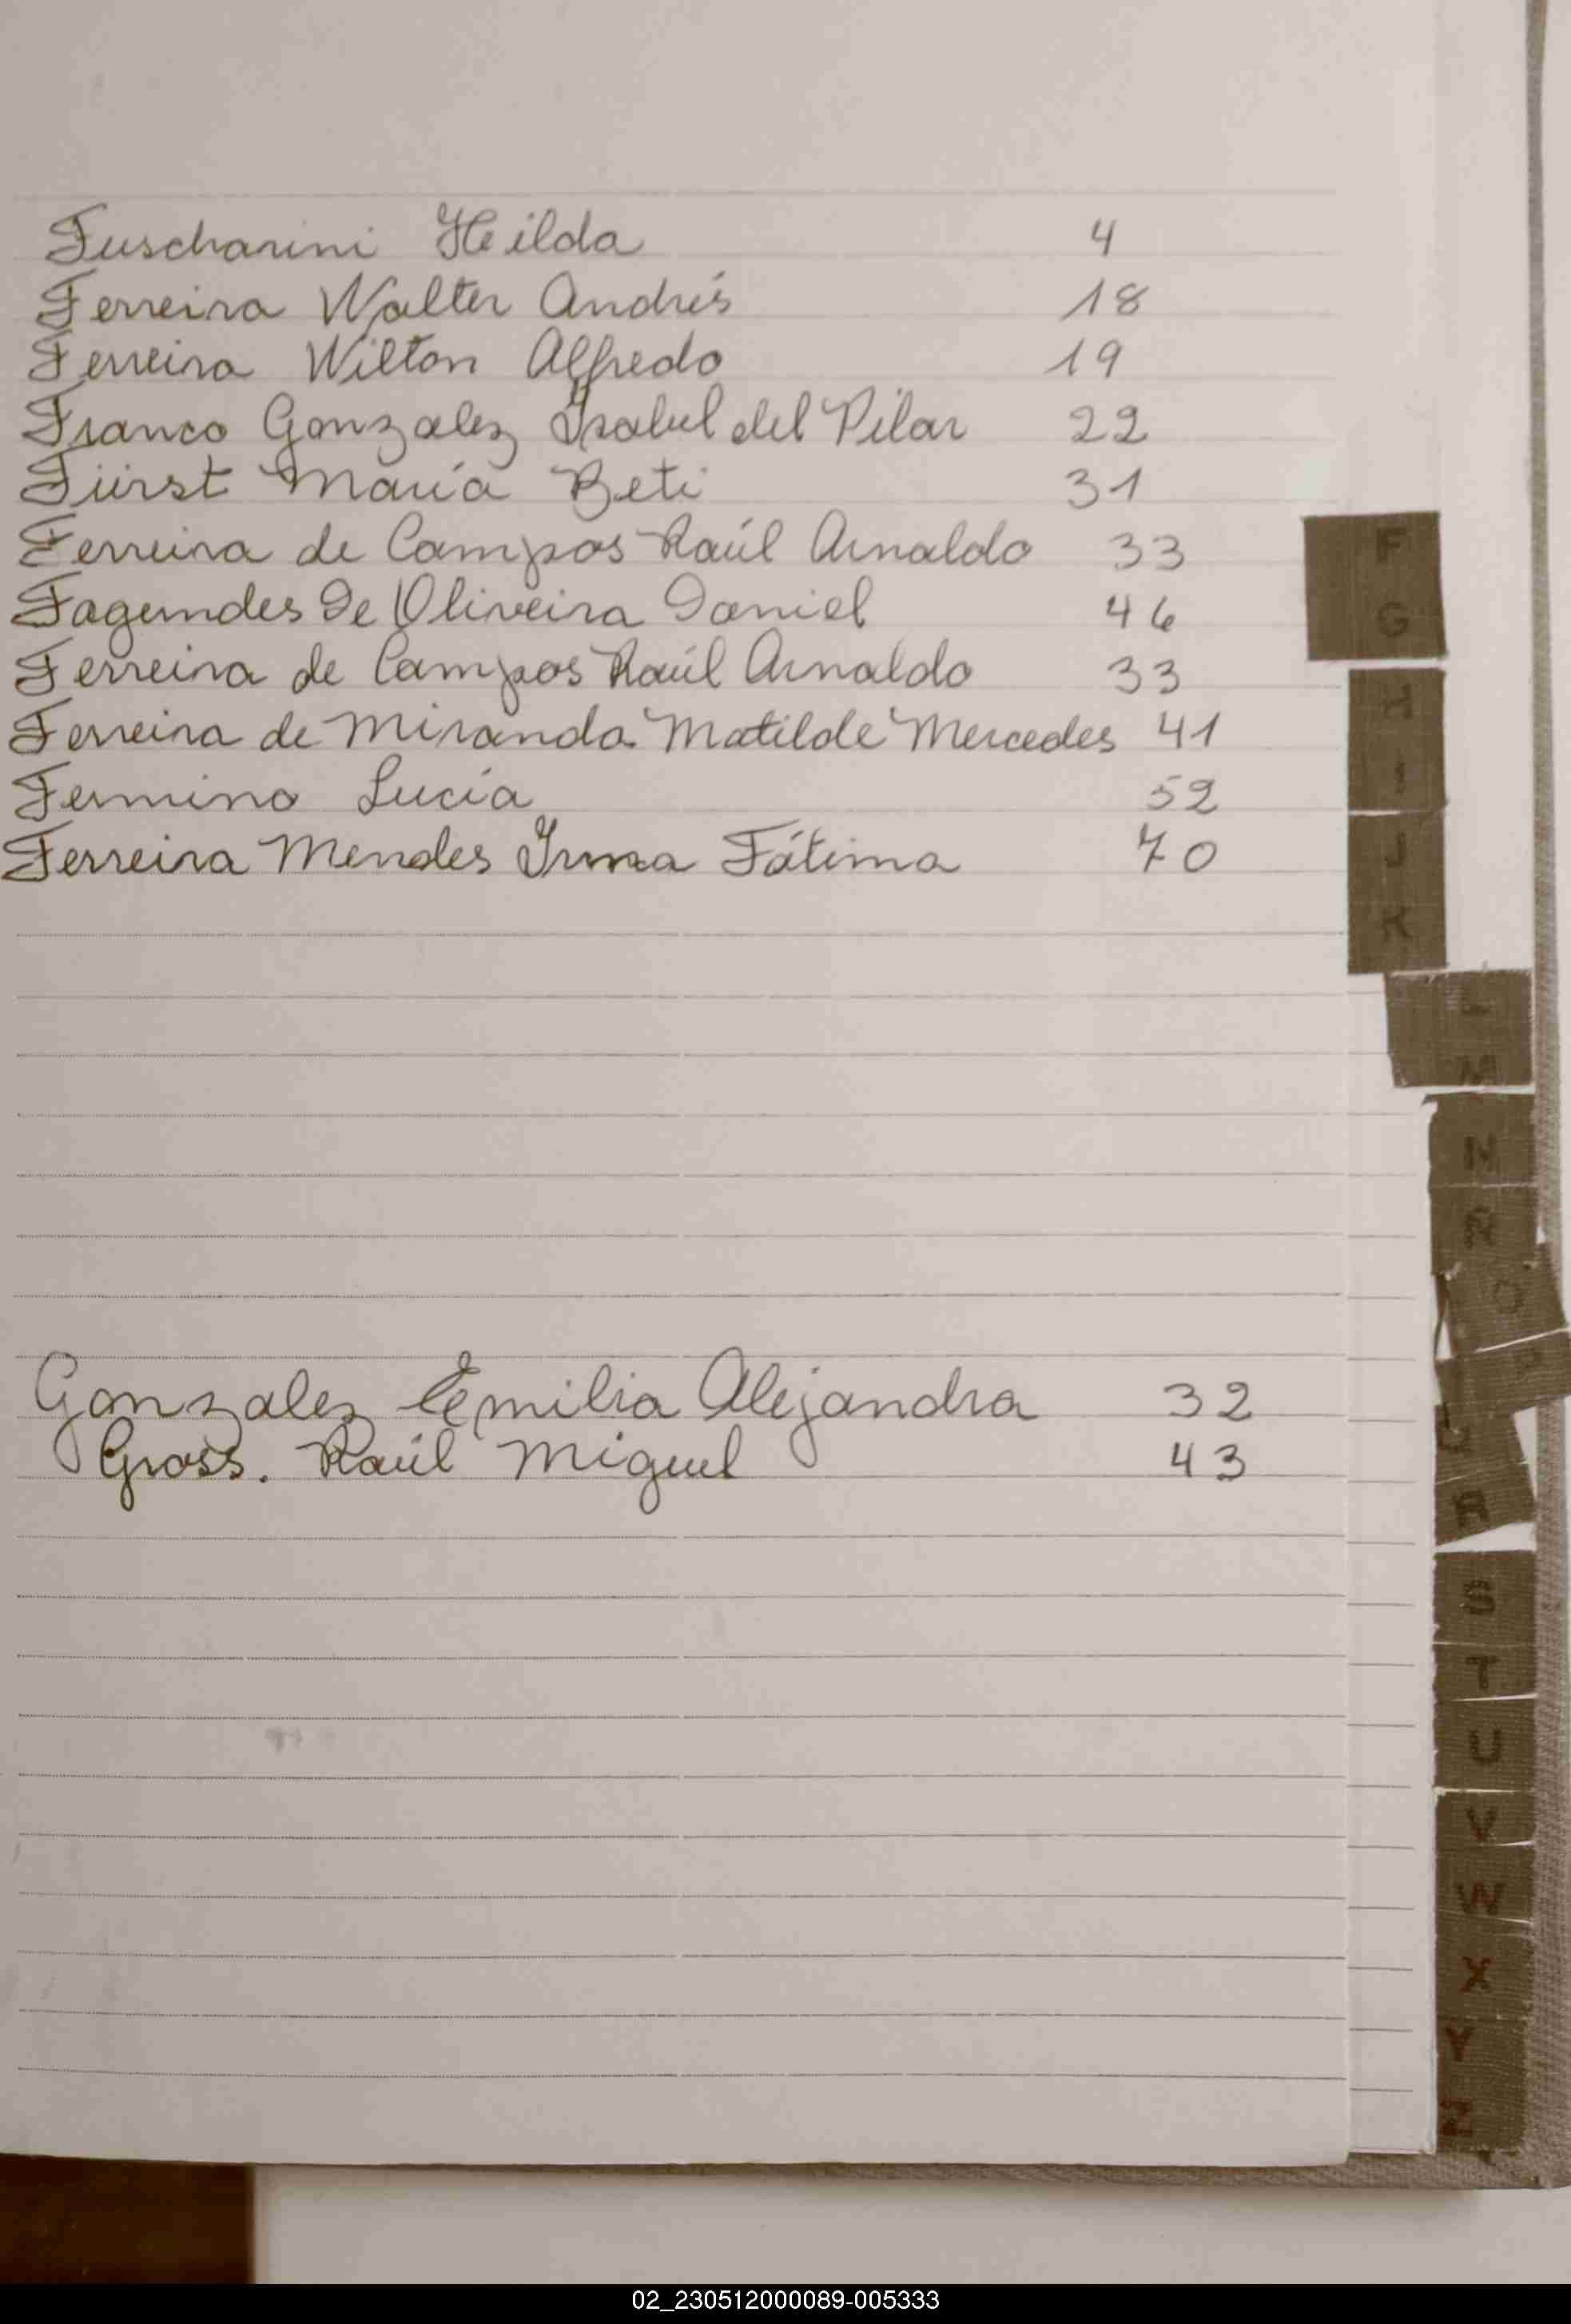 Fuscharini Hilda 4
Ferreira Walter Andrés 18
Ferreira Wilton Alfredo 19
Franco Gonzalez Isabel del Pilar 22
Fürst María Beti 31
Ferreira de Campos Raúl Arnaldo 33
Fagundes De Oliveira Daniel 46
Ferreira de Campos Raúl Arnaldo 33
Ferreira de Miranda Matilde Mercedes 41
Fermino Lucía 52
Ferreira Mendes Irma Fátima 70
Gonzalez Emilia Alejandra 32
Gross. Raúl Miguel 43
F
G
H
I
J
K
L
M
N
R
O
P
R
S
T
U
V
W
X
Y
Z
02_230512000089-005333